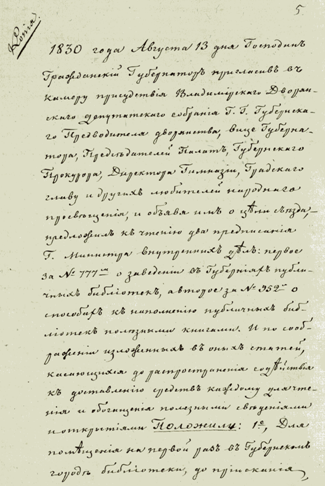 5
Копія
1830 года Августа 13 дня Господинъ
Гражданскій Губернаторъ пригласивъ въ
камеру присудствія Владимірскаго Дворян-
скаго депутатскаго собранія Г. Г. Губернска-
го Предводителя дворянства, вице Губерна-
тора, Предсѣдателей Палатъ, Губернскаго
Прокурора, Директора Гимназіи, Градскаго
главу и другихъ любителей народнаго
просвещенія, и объявя имъ о цѣли съѣзда
предложилъ къ чтенію два предписанія
Г. Министра внутреннихъ дѣлъ: первое
за № 777мъ о заведеніи въ Губерніяхъ публи-
чныхъ библіотекъ, а второе за № 952мъ о
способахъ къ наполненію публичныхъ биб-
ліотекъ полезными книгами. И по сооб-
раженіи изложенныхъ въ оныхъ статей,
касающихся до распространенія содѣйства
къ доставленію средствъ каждому для чте-
нія и обогащенія полезными свѣденіями
и открытіями Положили: 1е, Для
помѣщенія на первой разъ въ Губернскомъ
городѣ библіотеки, до пріисканія